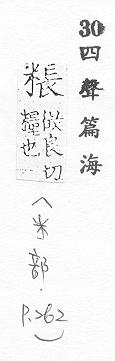 30四聲篇海
粻
做良切
糧也
(米部.P.262)